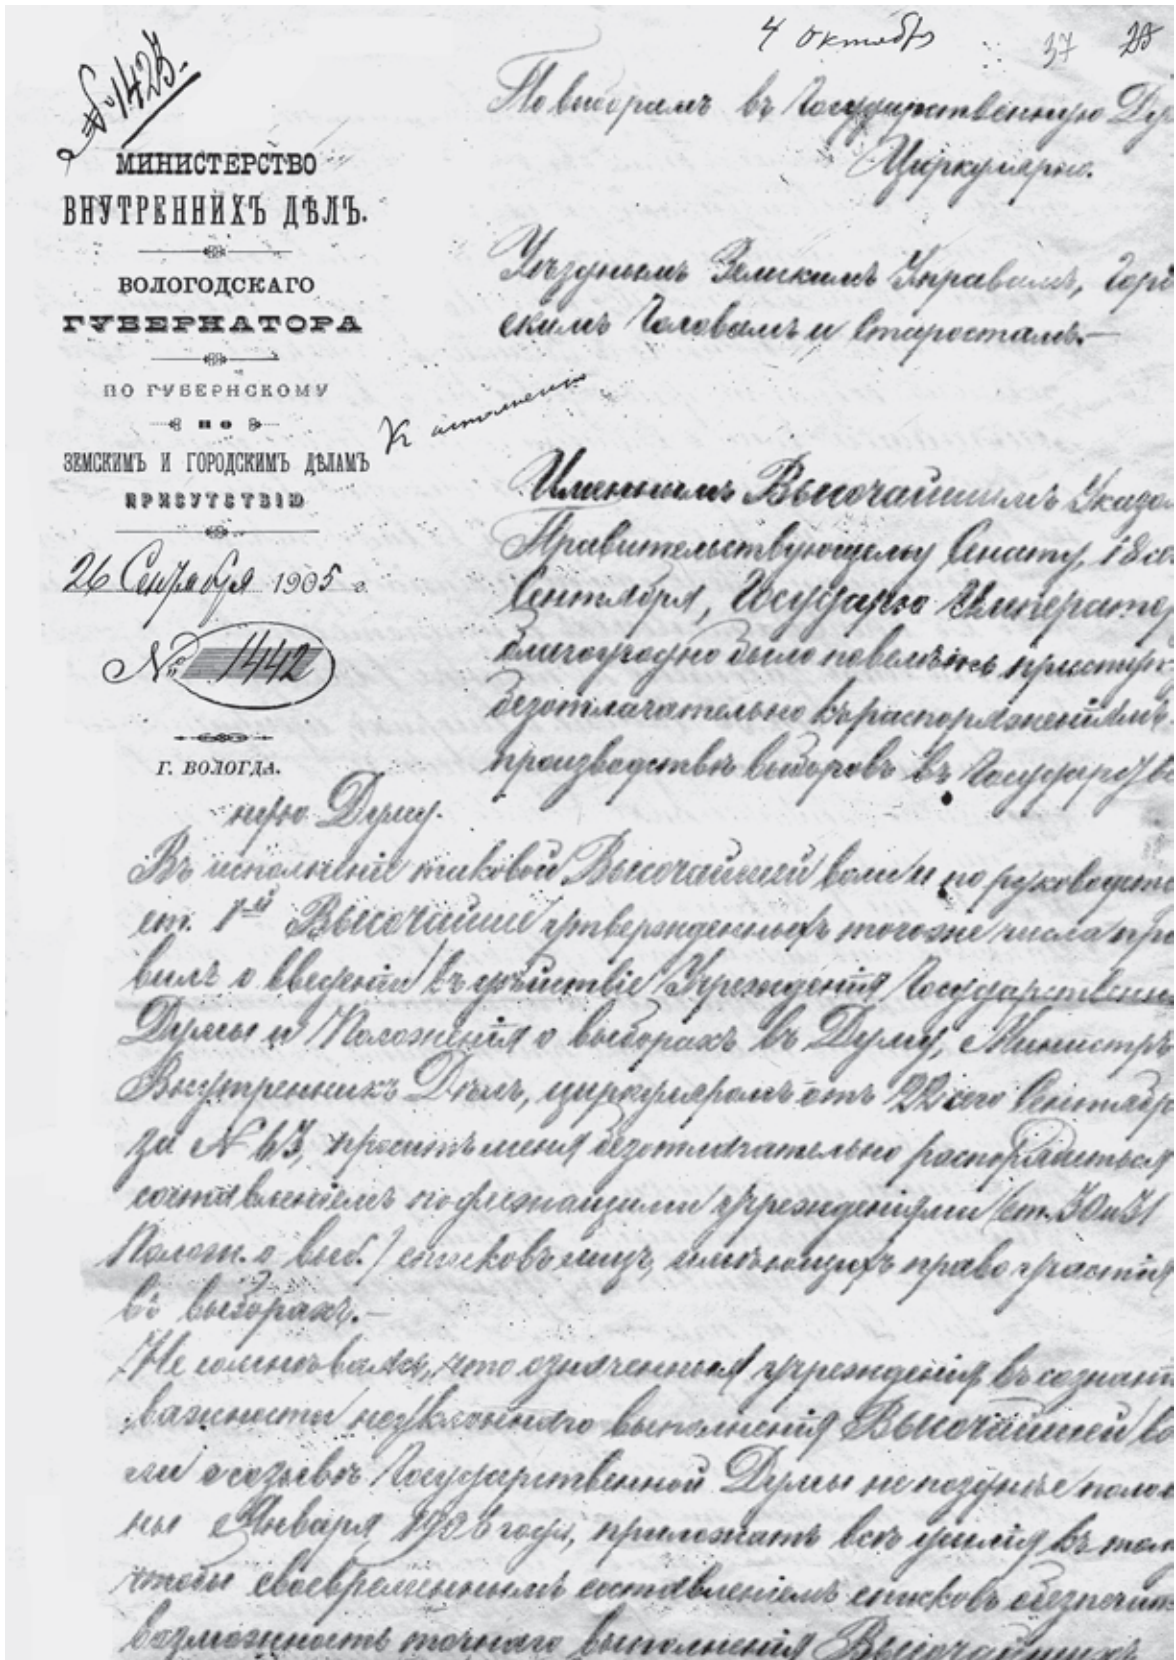 4 Октября 37 28
№ 1425.
МИНИСТЕРСТВО
ВНУТРЕННИХЪ ДѢЛЪ.
ВОЛОГОДСКАГО
ГУБЕРНАТОРА
ПО ГУБЕРНСКОМУ
ПО
ЗЕМСКИМЪ И ГОРОДСКИМЪ ДѢЛАМЪ
ПРИСУТСТВІЮ
26 Сентября 1905 г.
№ 1442
Г. ВОЛОГДА.
По выборамъ въ Государственную Ду
Циркулярно.
Уѣзднымъ Земскимъ Управамъ, Горо
скимъ Головамъ и Старостамъ.—
К исполнению
Именнымъ Высочайшимъ Указо
Правительствующему Сенату, 18 се
Сентября, Государю Императо
благоугодно было повелѣть приступ
безотлагательно къ распоряженіямъ
производствѣ выборовъ въ Государств
ную Думу.
Въ исполненіе таковой Высочайшей воли и по руководст
ст. 1ой Высочайше утвержденныхъ того же числа пра
вилъ о введеніи въ дѣйствіе Учрежденія Государственн
Думы и Положенія о выборахъ въ Думу, Министръ
Внутреннихъ Дѣлъ, циркуляромъ отъ 22 сего Сентябр
за № 63, проситъ меня безотлагательно распорядиться
составленіемъ подлежащими учрежденіями (ст. 30 и 31
Полож. о выб.) списковъ лицъ, имѣющихъ право участія
въ выборахъ.—
Не сомнѣваясь, что означенныя учрежденія въ сознані
важности неуклоннаго выполненія Высочайшей во
ли о созывѣ Государственной Думы не позднѣе полов
ны Января 1906 года, приложатъ всѣ усилія къ том
чтобы своевременнымъ составленіемъ списковъ обезпечит
возможность точнаго выполненія Высочайшихъ